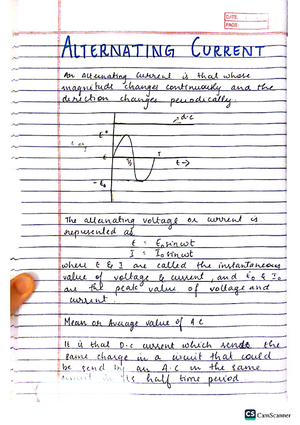 DATE
PAGE
ALTERNATING CURRENT
An alternating current is that whose
magnitude changes continuously and the
direction changes periodically.
d.c
E°
T
t →
- E₀
The alternating voltage or current is
represented as
E = E₀ sin ωt
I = I₀ sin ωt
where E & I are called the instantaneous
value of voltage & current, and E₀ & I₀
are the peak value of voltage and
current.
Mean or Average value of A C
It is that D.c current which sends the
same charge in a circuit that could
be send by an A.C in the same
circuit in its half time period
CS CamScanner